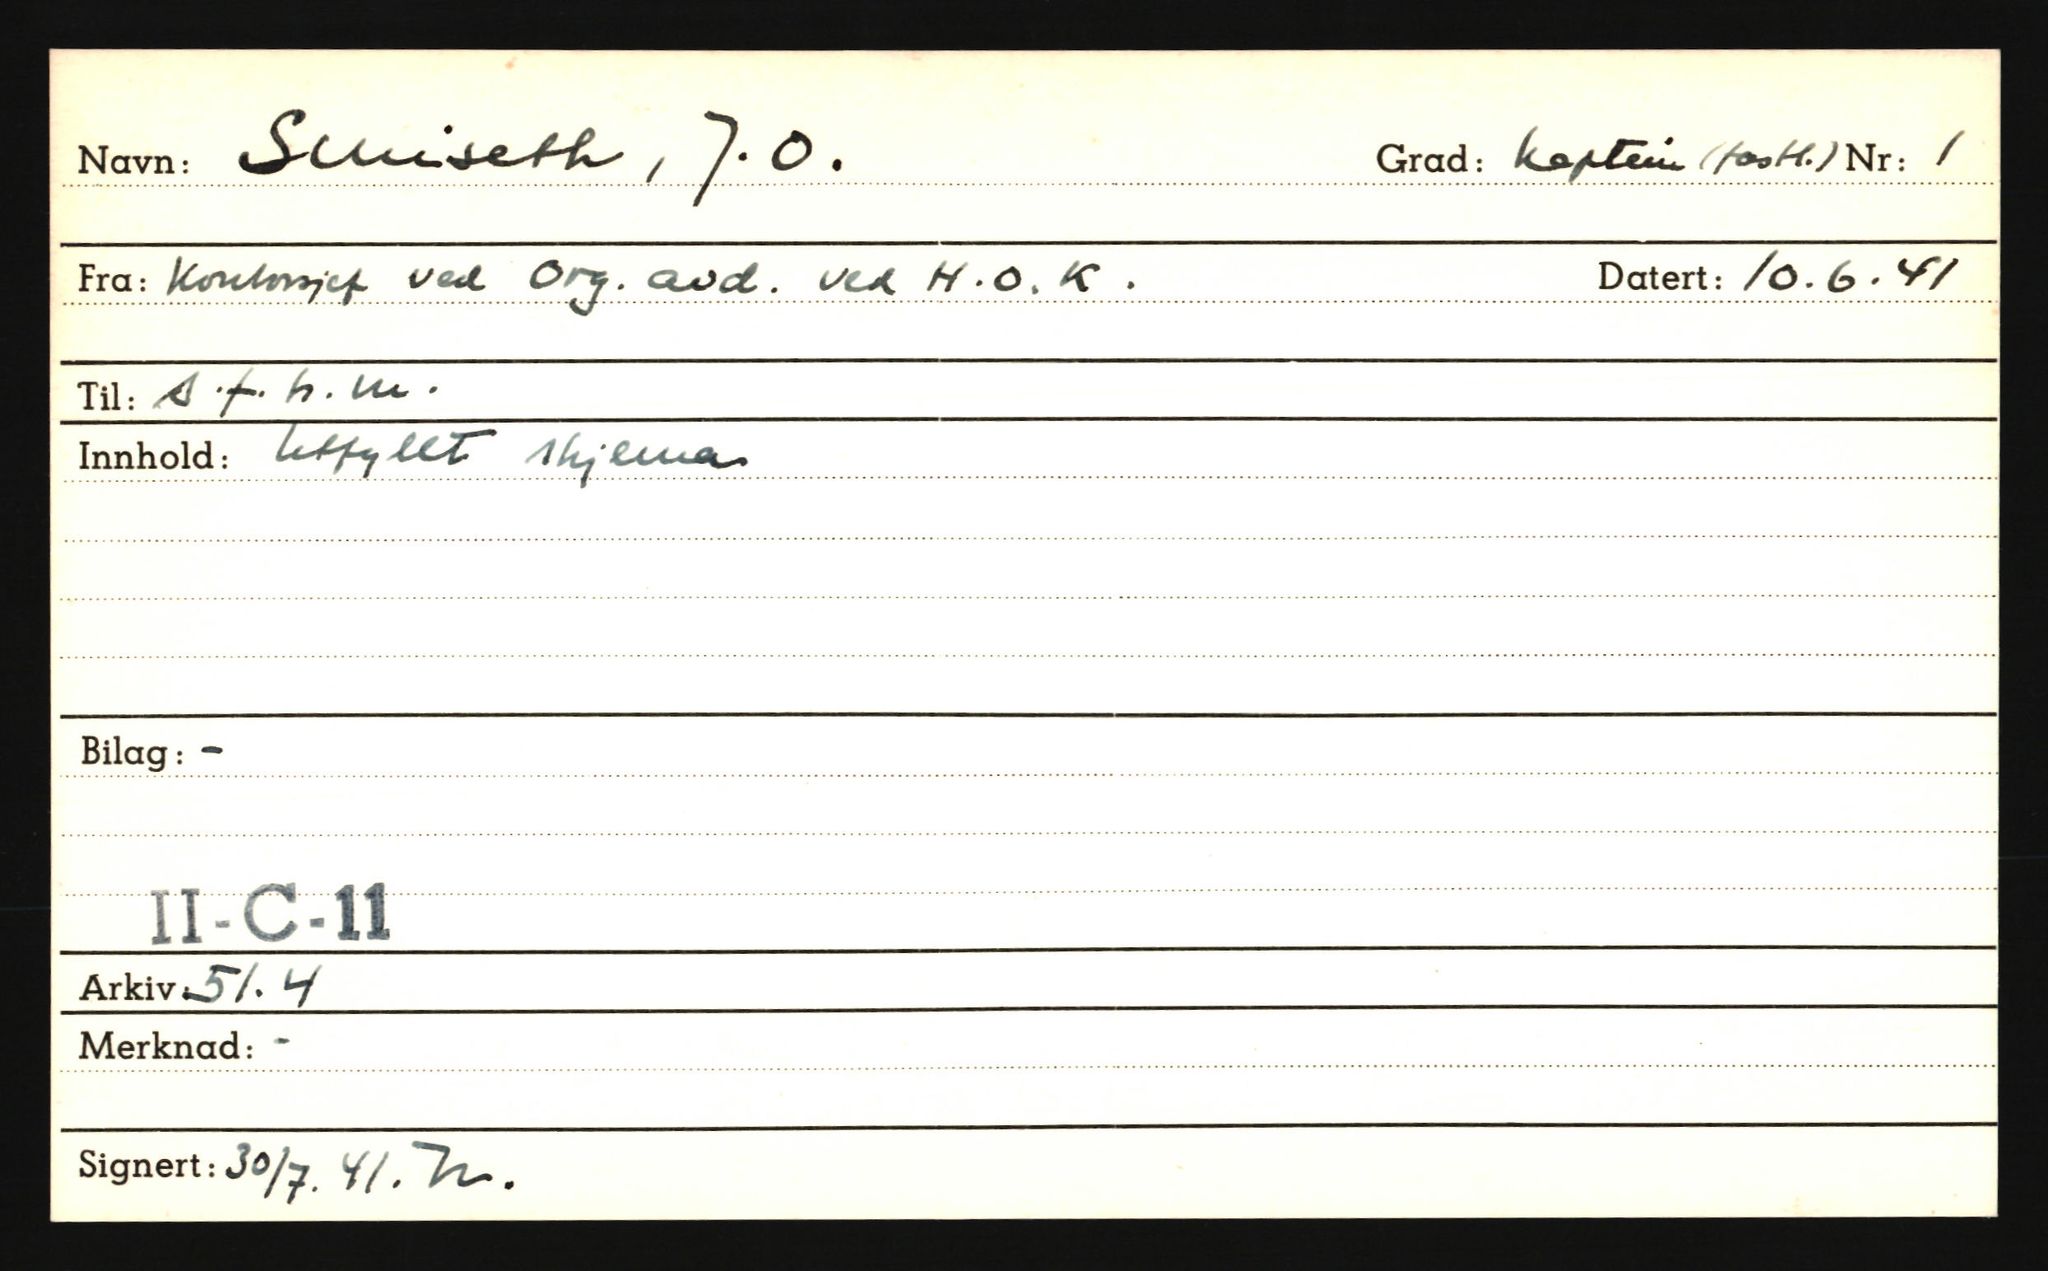 Navn: Smiseth, J. O. Grad: kaptein (fastl.) Nr: 1
Fra: Kontorsjef ved Org. avd. ved H.O.K. Datert: 10.6.41
Til:
Innhold: Utfyllt skjema
Bilag: -
II-C-11
Arkiv: 51.4
Merknad: -
Signert: 30/7. 41.